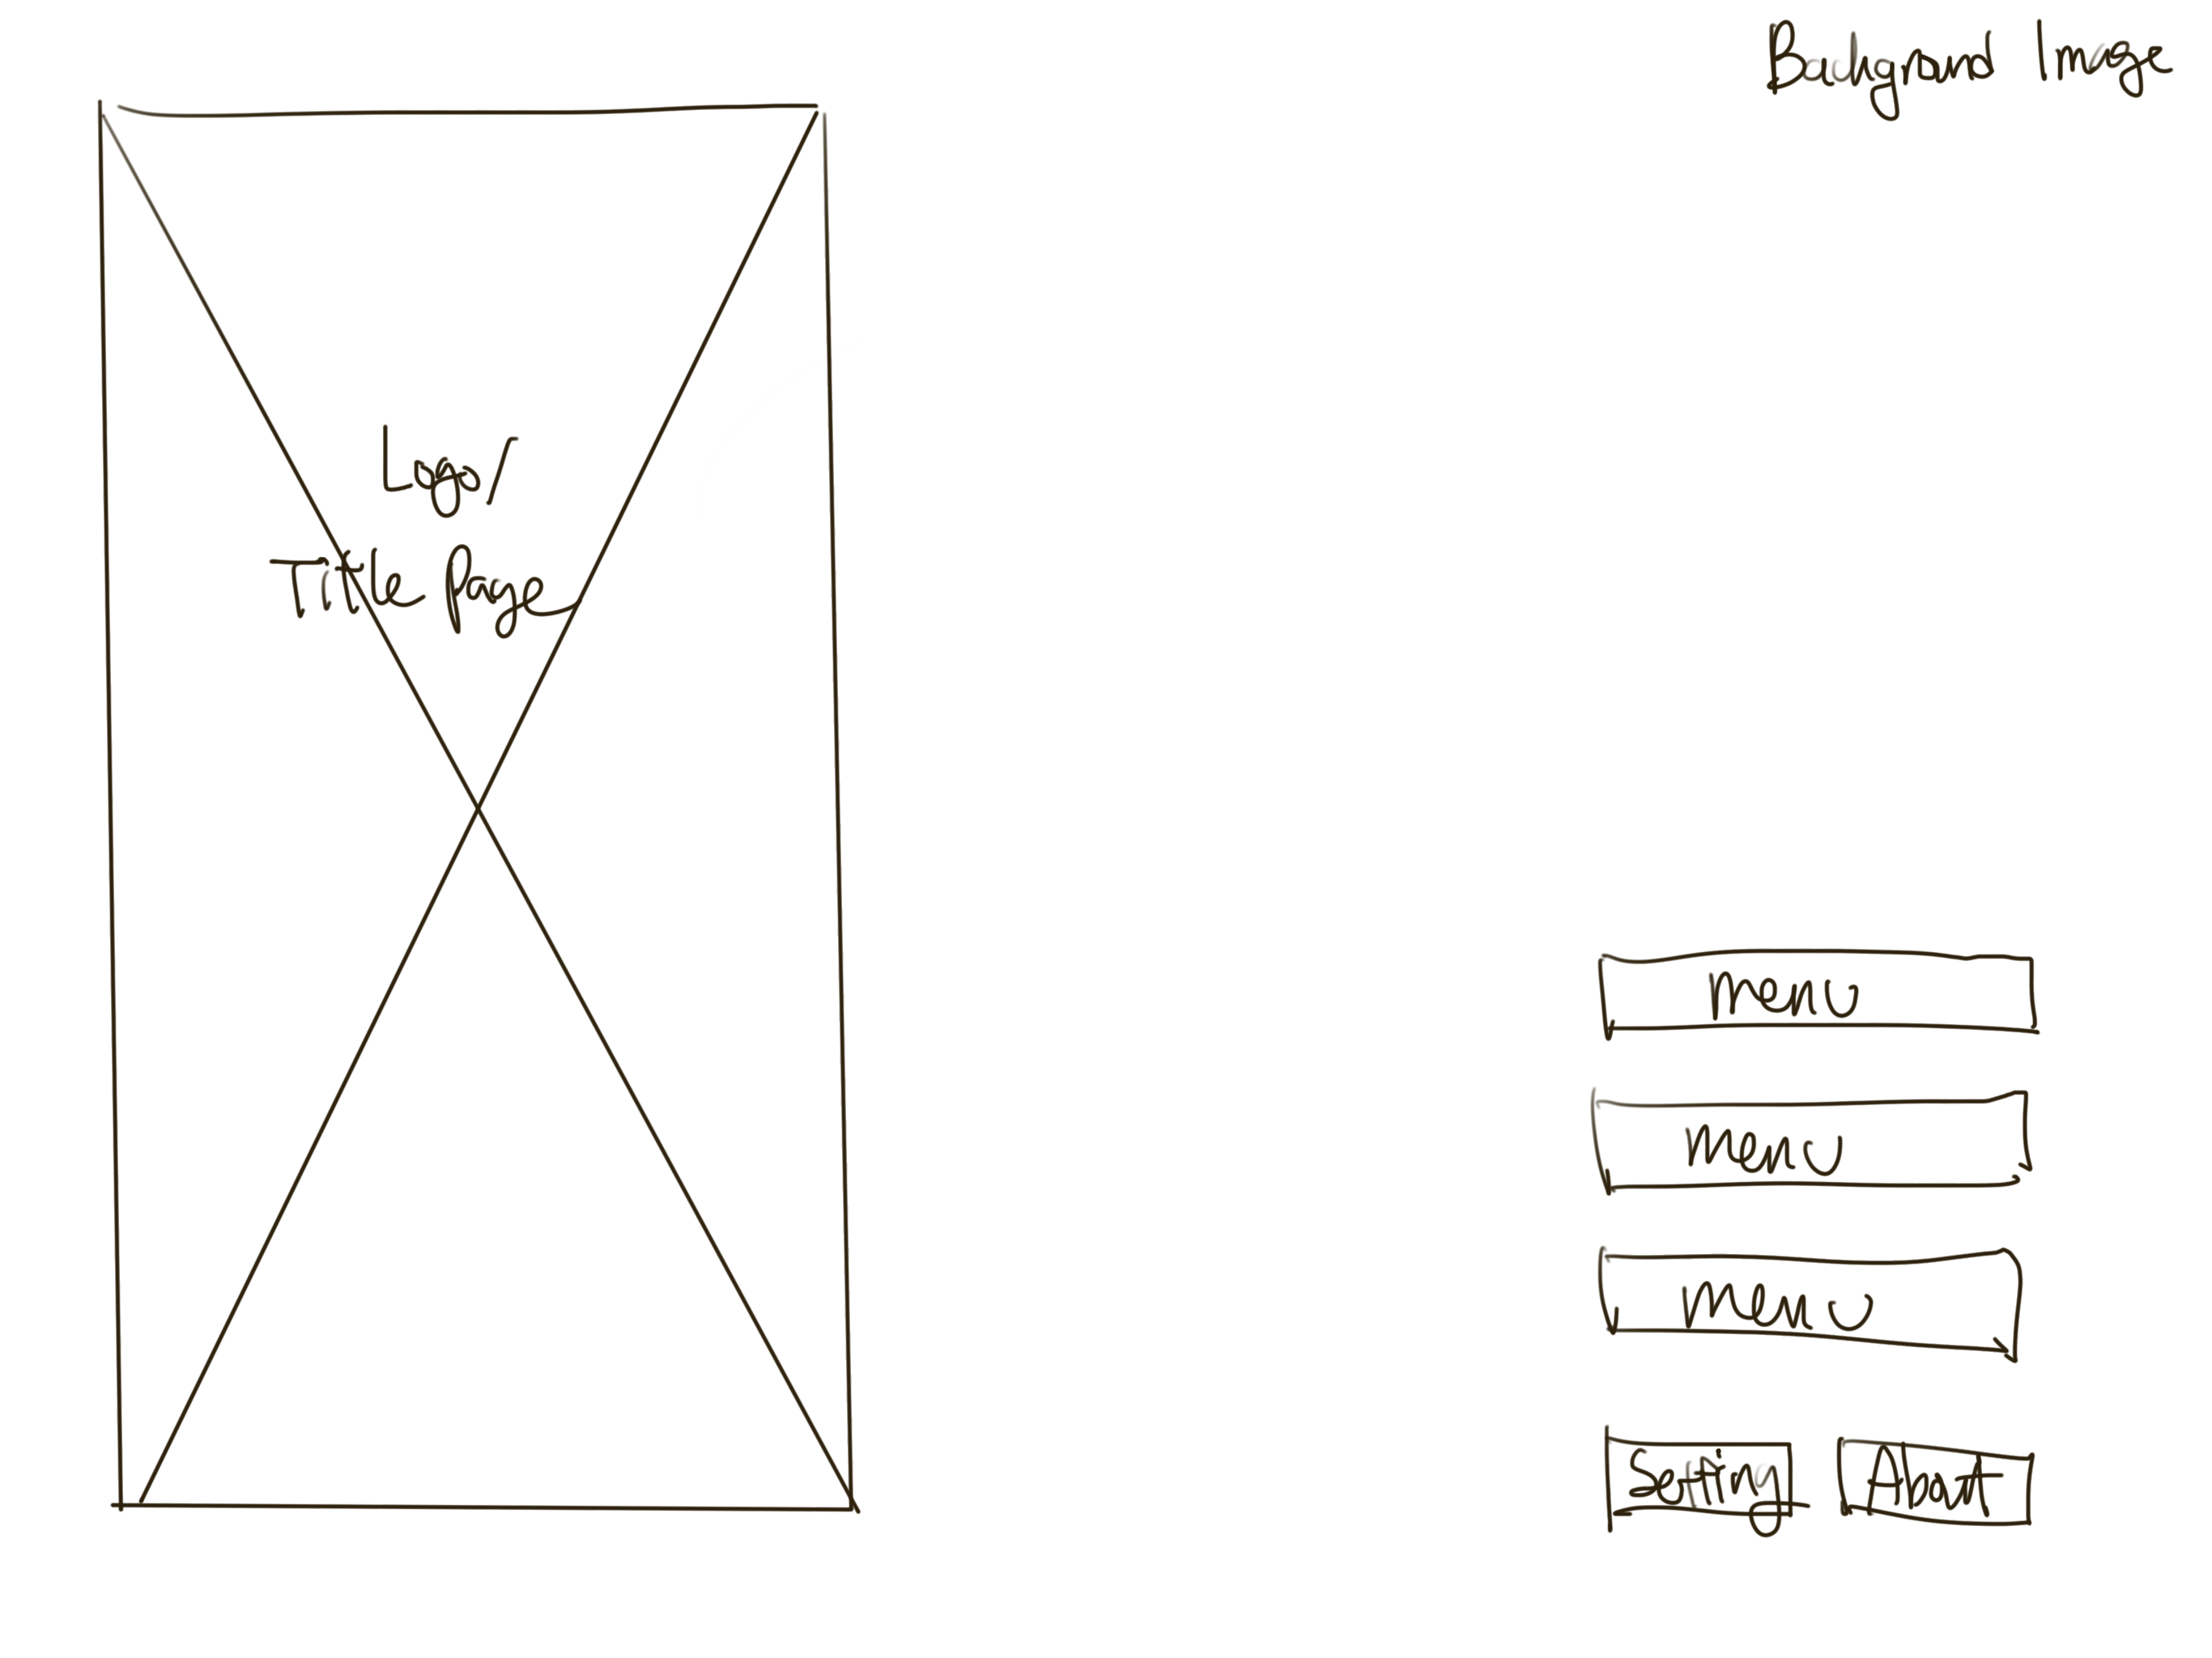 Background Image
Logo/
Title Page
menu
menu
menu
Setting
About